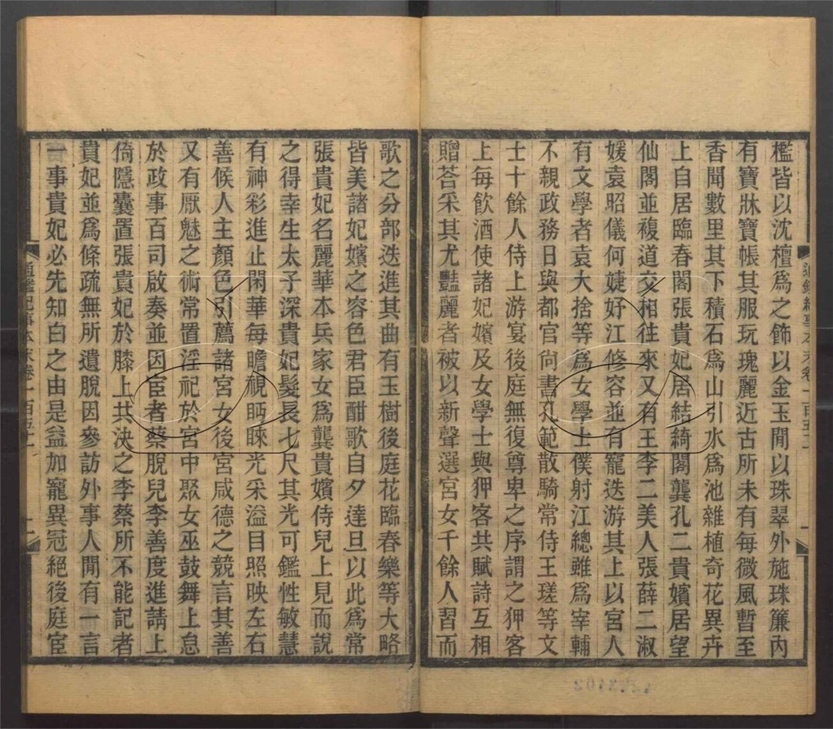 檻皆以沈檀爲之飾以金玉閒以珠翠外施珠簾內
有寶牀寶帳其服玩瑰麗近古所未有每微風暫至
香聞數里其下積石爲山引水爲池雜植奇花異卉
上自居臨春閣張貴妃居結綺閣龔孔二貴嬪居望
仙閣並複道交相往來又有王李二美人張薛二淑
媛袁昭儀何婕妤江修容並有寵迭游其上以宮人
有文學者袁大捨等爲女學士僕射江總雖爲宰輔
不親政務日與都官尙書孔範散騎常侍王瑳等文
士十餘人侍上游宴後庭無復尊卑之序謂之狎客
上每飮酒使諸妃嬪及女學士與狎客共賦詩互相
贈荅采其尤豔麗者被以新聲選宮女千餘人習而
歌之分部迭進其曲有玉樹後庭花臨春樂等大略
皆美諸妃嬪之容色君臣酣歌自夕達旦以此爲常
張貴妃名麗華本兵家女爲龔貴嬪侍兒上見而說
之得幸生太子深貴妃髮長七尺其光可鑑性敏慧
有神彩進止閑華每瞻視眄睞光采溢目照映左右
善候人主顏色引薦諸宮女後宮咸德之競言其善
又有厭魅之術常置淫祀於宮中聚女巫鼓舞上怠
於政事百司啟奏並因宦者蔡脫兒李善度進請上
倚隱囊置張貴妃於膝上共決之李蔡所不能記者
貴妃並爲條疏無所遺脫因參訪外事人閒有一言
一事貴妃必先知白之由是益加寵異冠絕後庭宦
通鑑紀事本末卷一百五十